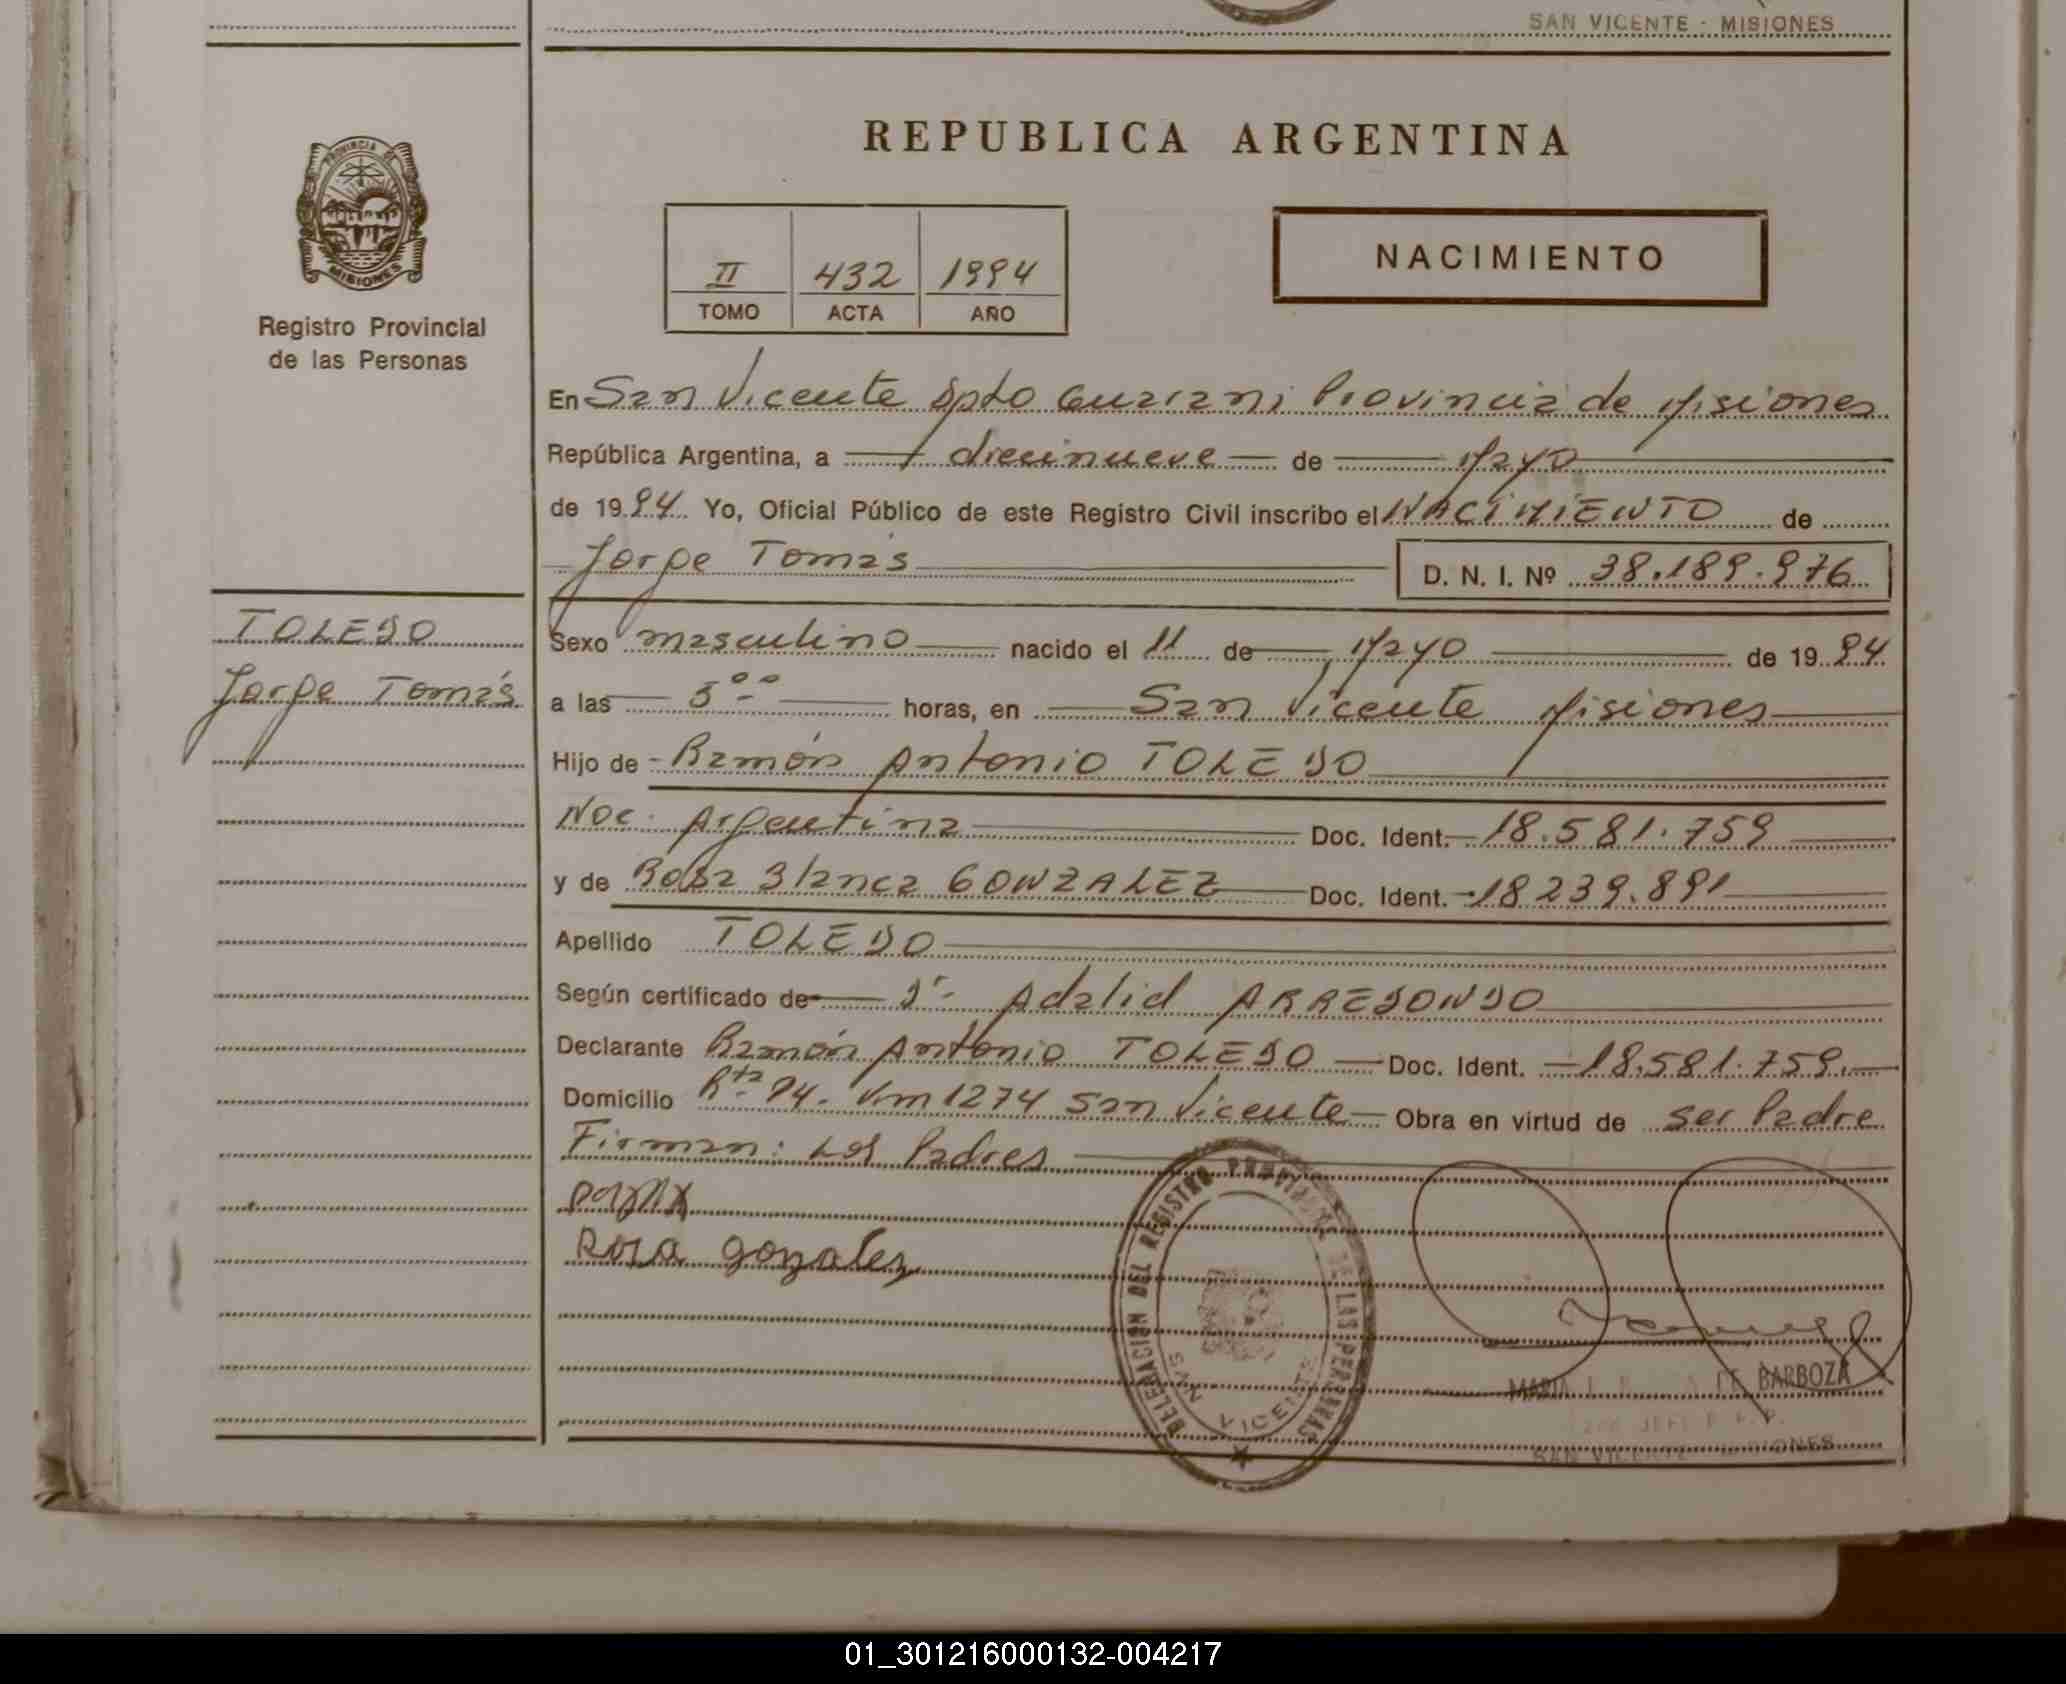 SAN VICENTE - MISIONES
REPUBLICA ARGENTINA
PROVINCIA DE
MISIONES
Registro Provincial
de las Personas
II 432 1994
TOMO ACTA AÑO
NACIMIENTO
En San Vicente Dpto Guarani Provincia de Misiones
República Argentina, a diecinueve de Mayo
de 1994 Yo, Oficial Público de este Registro Civil inscribo el NACIMIENTO de
Jorge Tomás D. N. I. Nº 38.189.976
TOLEDO
Jorge Tomás
Sexo masculino nacido el 11 de Mayo de 1994
a las 5 00 horas, en San Vicente Misiones
Hijo de Ramón Antonio TOLEDO
Nac. Argentina Doc. Ident. 18.581.759
y de Rosa Blanca GONZALEZ Doc. Ident. 18 239.891
Apellido TOLEDO
Según certificado de Dr. Adalid ARREDONDO
Declarante Ramón Antonio TOLEDO Doc. Ident. 18.581.759.
Domicilio Rta. 14. Km 1274 San Vicente Obra en virtud de ser Padre
Firman: Los Padres
Rosa gonzalez
DELEGACION DEL REGISTRO PROVINCIAL DE LAS PERSONAS
SAN VICENTE
MARIA DE BARBOZA
SAN VICENTE MISIONES
01_301216000132-004217